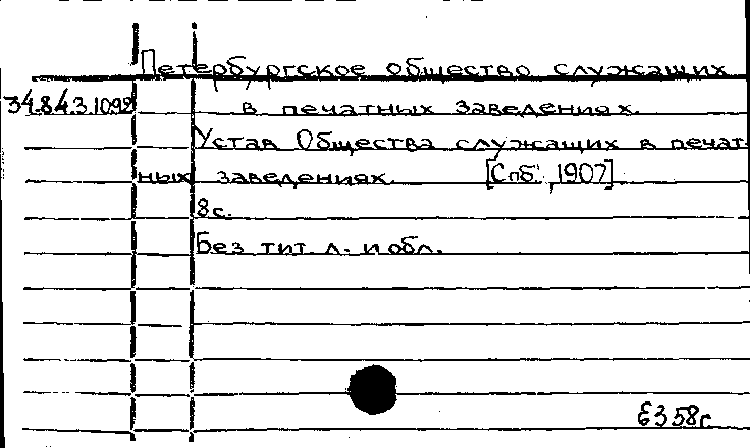 Петербургское общество служащих
34.84.3.1092 в печатных заведениях.
Устав Общества служащих в печат
ных заведениях. [Спб., 1907].
8с.
Без тит. л. и обл.
6358г